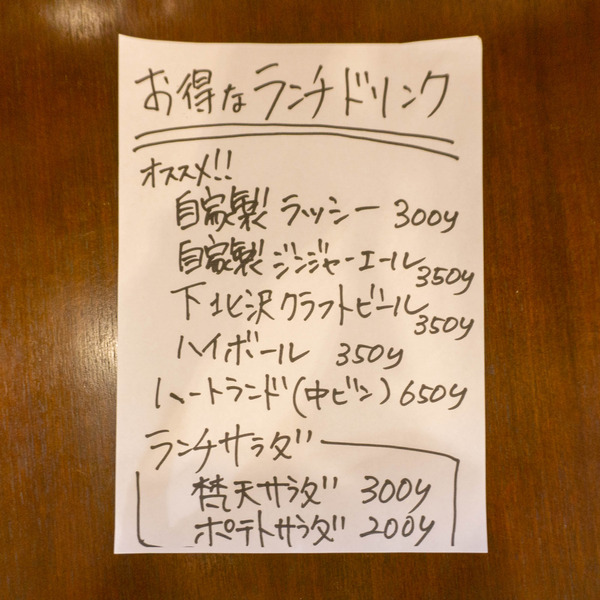 お得なランチドリンク
オススメ!!
自家製 ラッシー 300y
自家製 ジンジャーエール 350y
下北沢クラフトビール 350y
ハイボール 350y
ハートランド(中ビン) 650y
ランチサラダ
梵天サラダ 300y
ポテトサラダ 200y